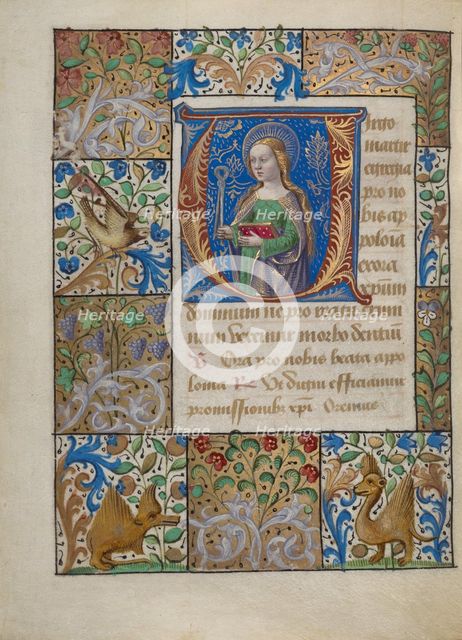 Virgo
martir
egregia
pro no
bis ap
polonia
exora
xpum
dominum ne pro reatu crimi
num vexemur morbo dentium
V Ora pro nobis beata appo
lonia R Ut digni efficiamur
promissionibus xpi Oremus
Heritage
Heritage
Heritage
Heritage
Heritage
Heritage
Heritage
Heritage